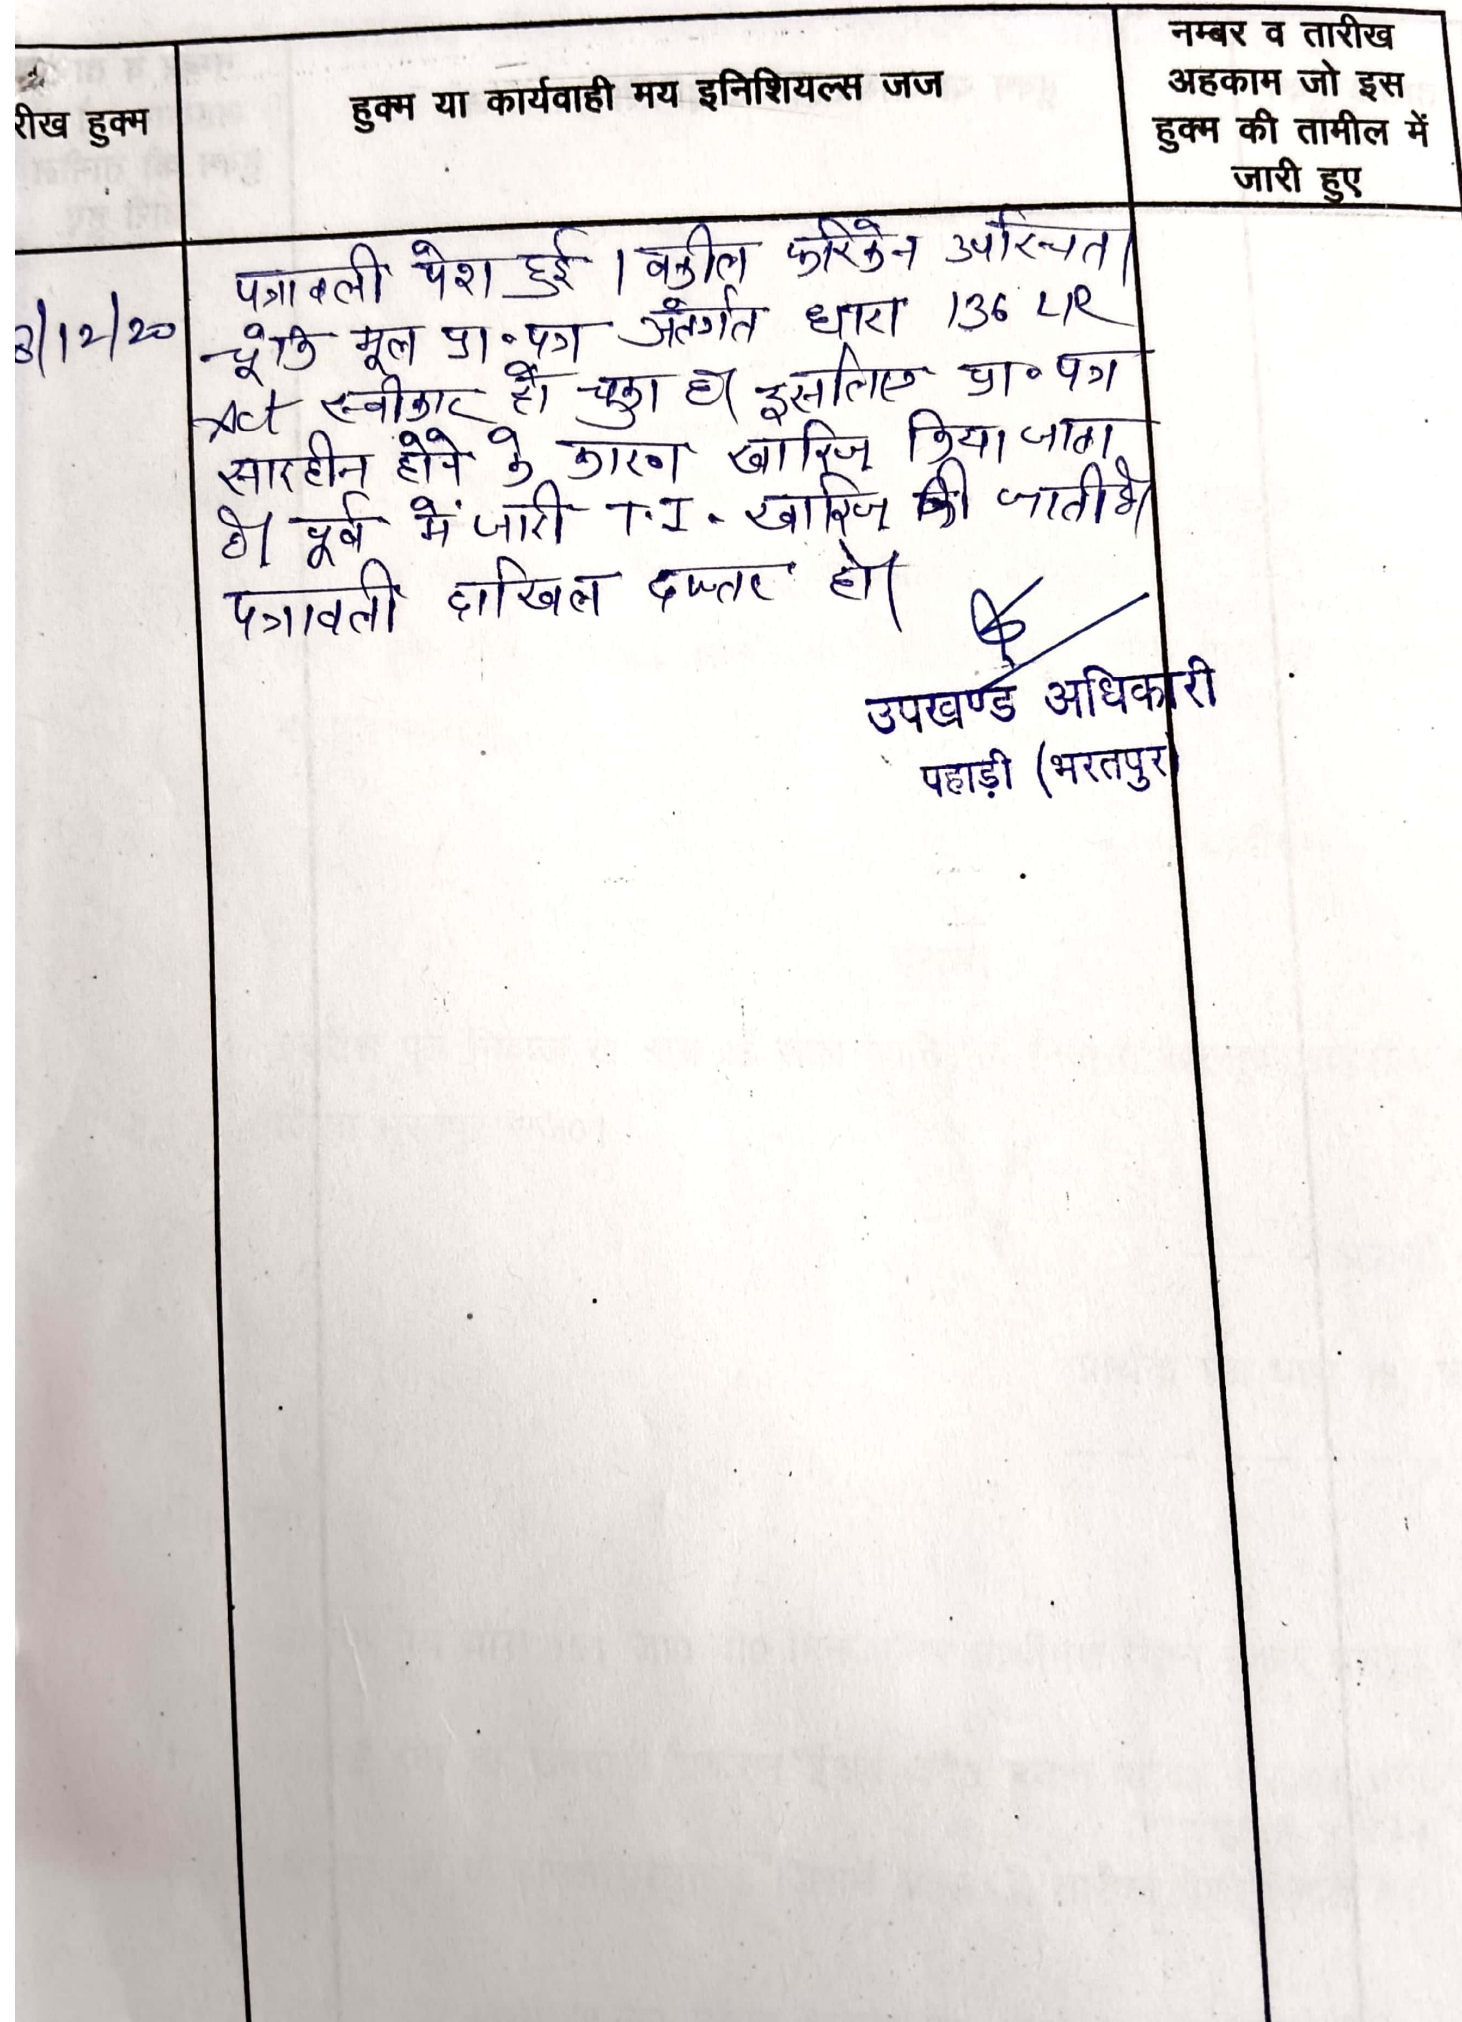 रीख हुक्म
हुक्म या कार्यवाही मय इनिशियल्स जज
नम्बर व तारीख
अहकाम जो इस
हुक्म की तामील में
जारी हुए
/12/20
पत्रावली पेश हुई । वकील फरिकेन उपस्थित।
चूंकि मूल प्रा॰पत्र अंतर्गत धारा 136 LR
Act स्वीकार हो चुका है। इसलिए प्रा॰पत्र
सारहीन होने के कारण खारिज किया जाता
है। पूर्व में जारी T.I. खारिज की जाती है।
पत्रावली दाखिल दफ्तर हो।
उपखण्ड अधिकारी
पहाड़ी (भरतपुर)